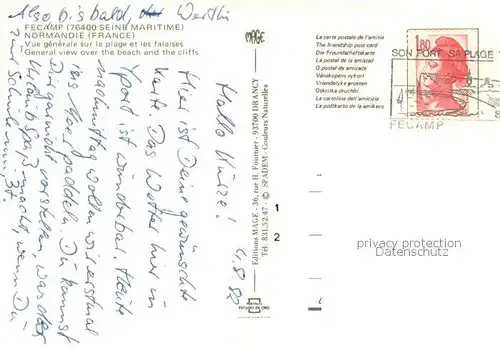 Also bis bald, Werthi
FECAMP (76400 SEINE MARITIME)
NORMANDIE (FRANCE)
Vue générale sur la plage et les falaises
General view over the beach and the cliffs
4.8.82
Hallo Hinze!
Hier ist Deine gewünschte
Karte. Das Wetter hier im
ist wunderbar. Heute
nachmittag wollen wir erstmal
ins Meer paddeln. Du kannst
Dir garnicht vorstellen, was der
Urlaub Spaß macht, wenn Du
zur Schule mußt.
MAGE
Editions MAGE - 36, rue H. Fournier - 93700 DRANCY
Tél. 831.52.47 - © SPADEM - Couleurs Naturelles
La carte postale de l'amitié
The friendship post card
Die Freundschaftkarte
La postal de la amistad
O postal de amizade
Vänskapens vykort
Vriendelyke groeten
La cartolina dell'amicizia
La poŝtkarto de la amikeco
1,80
SON PORT, SA PLAGE
FECAMP
1
2
privacy protection
Datenschutz